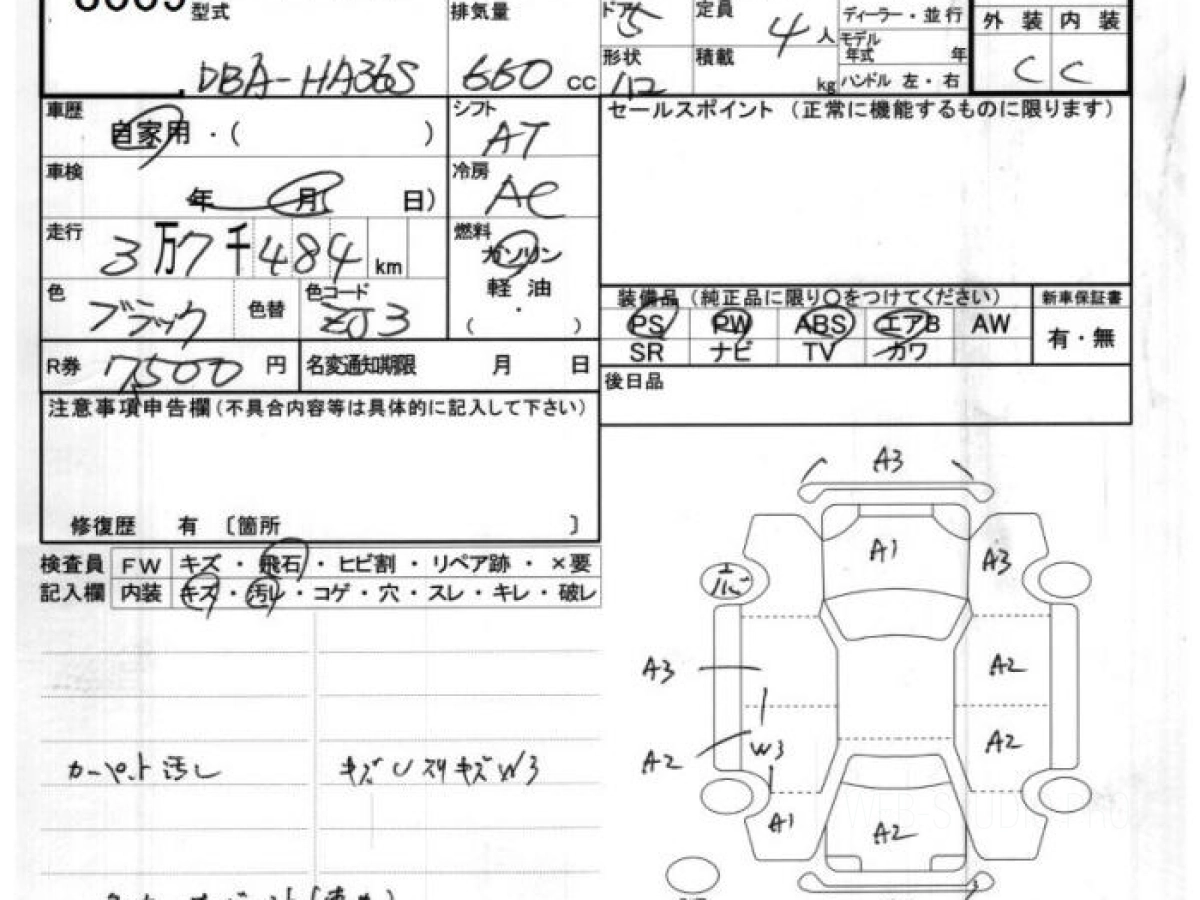 型式 DBA-HA36S
排気量 660 cc
ドア 5
定員 4人
ディーラー・並行
モデル年式 年
形状
積載 kg
ハンドル 左・右
外装 内装
C C
車歴 自家用・( )
シフト AT
セールスポイント (正常に機能するものに限ります)
車検 年 月 日)
冷房 AC
走行 3万7千484 km
燃料 ガソリン
軽油
・
( )
色 ブラック
色替
色コード ZJ3
装備品 (純正品に限り○をつけてください)
新車保証書
PS PW ABS エアB AW
有・無
SR ナビ TV カワ
R券 7,500 円
名変通知期限 月 日
後日品
注意事項申告欄(不具合内容等は具体的に記入して下さい)
修復歴 有 〔箇所 〕
検査員 FW キズ・飛石・ヒビ割・リペア跡・×要
記入欄 内装 キズ・汚レ・コゲ・穴・スレ・キレ・破レ
カーペット汚レ
A3
A1
A3
A3
A2
A2
W3
A2
A1
A2